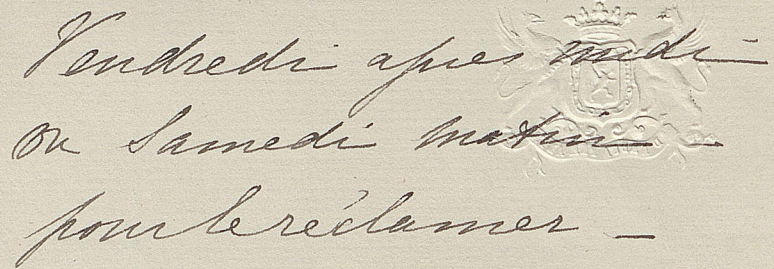 Vendredi après midi -
ou Samedi matin -
pour le réclamer -